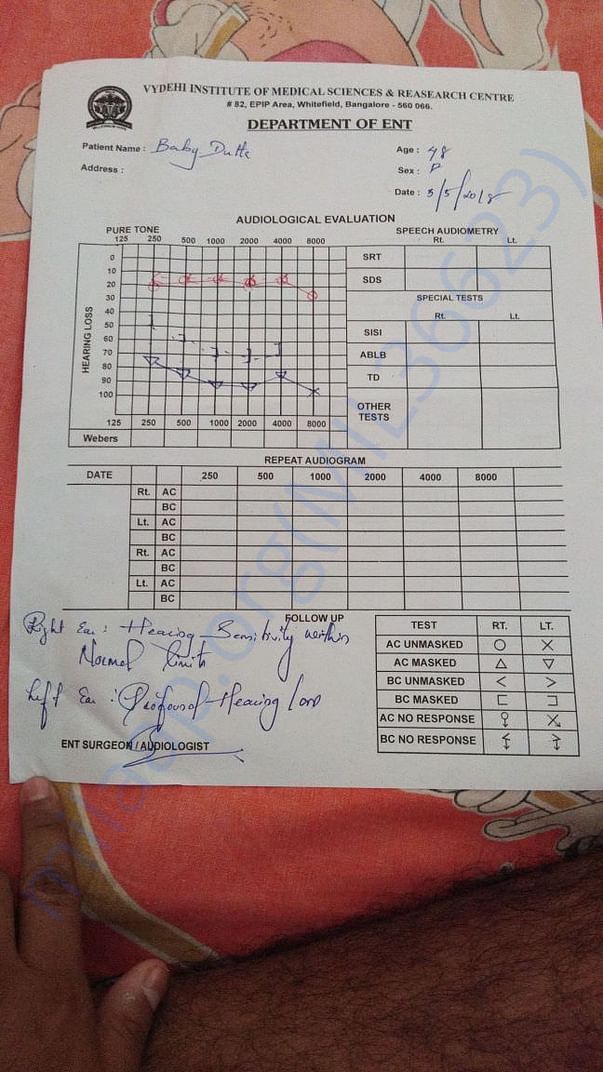 VYDEHI INSTITUTE OF MEDICAL SCIENCES & REASEARCH CENTRE
# 82, EPIP Area, Whitefield, Bangalore - 560 066.
DEPARTMENT OF ENT
Patient Name : Baby Dutta
Age : 48
Address :
Sex : F
Date : 3/5/2018
AUDIOLOGICAL EVALUATION
PURE TONE
SPEECH AUDIOMETRY
125 250 500 1000 2000 4000 8000
Rt. Lt.
HEARING LOSS
0
10
20
30
40
50
60
70
80
90
100
125 250 500 1000 2000 4000 8000
Webers
SRT
SDS
SPECIAL TESTS
Rt. Lt.
SISI
ABLB
TD
OTHER
TESTS
REPEAT AUDIOGRAM
DATE 250 500 1000 2000 4000 8000
Rt. AC
BC
Lt. AC
BC
Rt. AC
BC
Lt. AC
BC
FOLLOW UP
Right Ear : Hearing Sensitivity within
Normal limits
Left Ear : Profound Hearing loss
ENT SURGEON / AUDIOLOGIST
TEST RT. LT.
AC UNMASKED
AC MASKED
BC UNMASKED
BC MASKED
AC NO RESPONSE
BC NO RESPONSE
milaap.org(MIL36623)